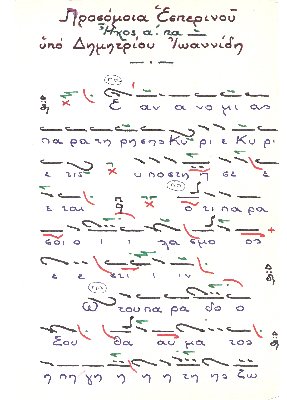 Προσόμοια Ἑσπερινοῦ
Ἦχος α΄. πα
ὑπό Δημητρίου Ἰωαννίδη
Ε αν α νο μι ας
πα ρα τη ρη σης Κυ ρι ε Κυ ρι
ε τις υ ποστη η σε ε
ε ται ο τι πα ρα
σοι ο ι ι λα σμο ος
ε ε στι ι ιν
Ω του πα ρα δο ο
ξου θα αυ μα τος
η πη γη η η τη ης ζω